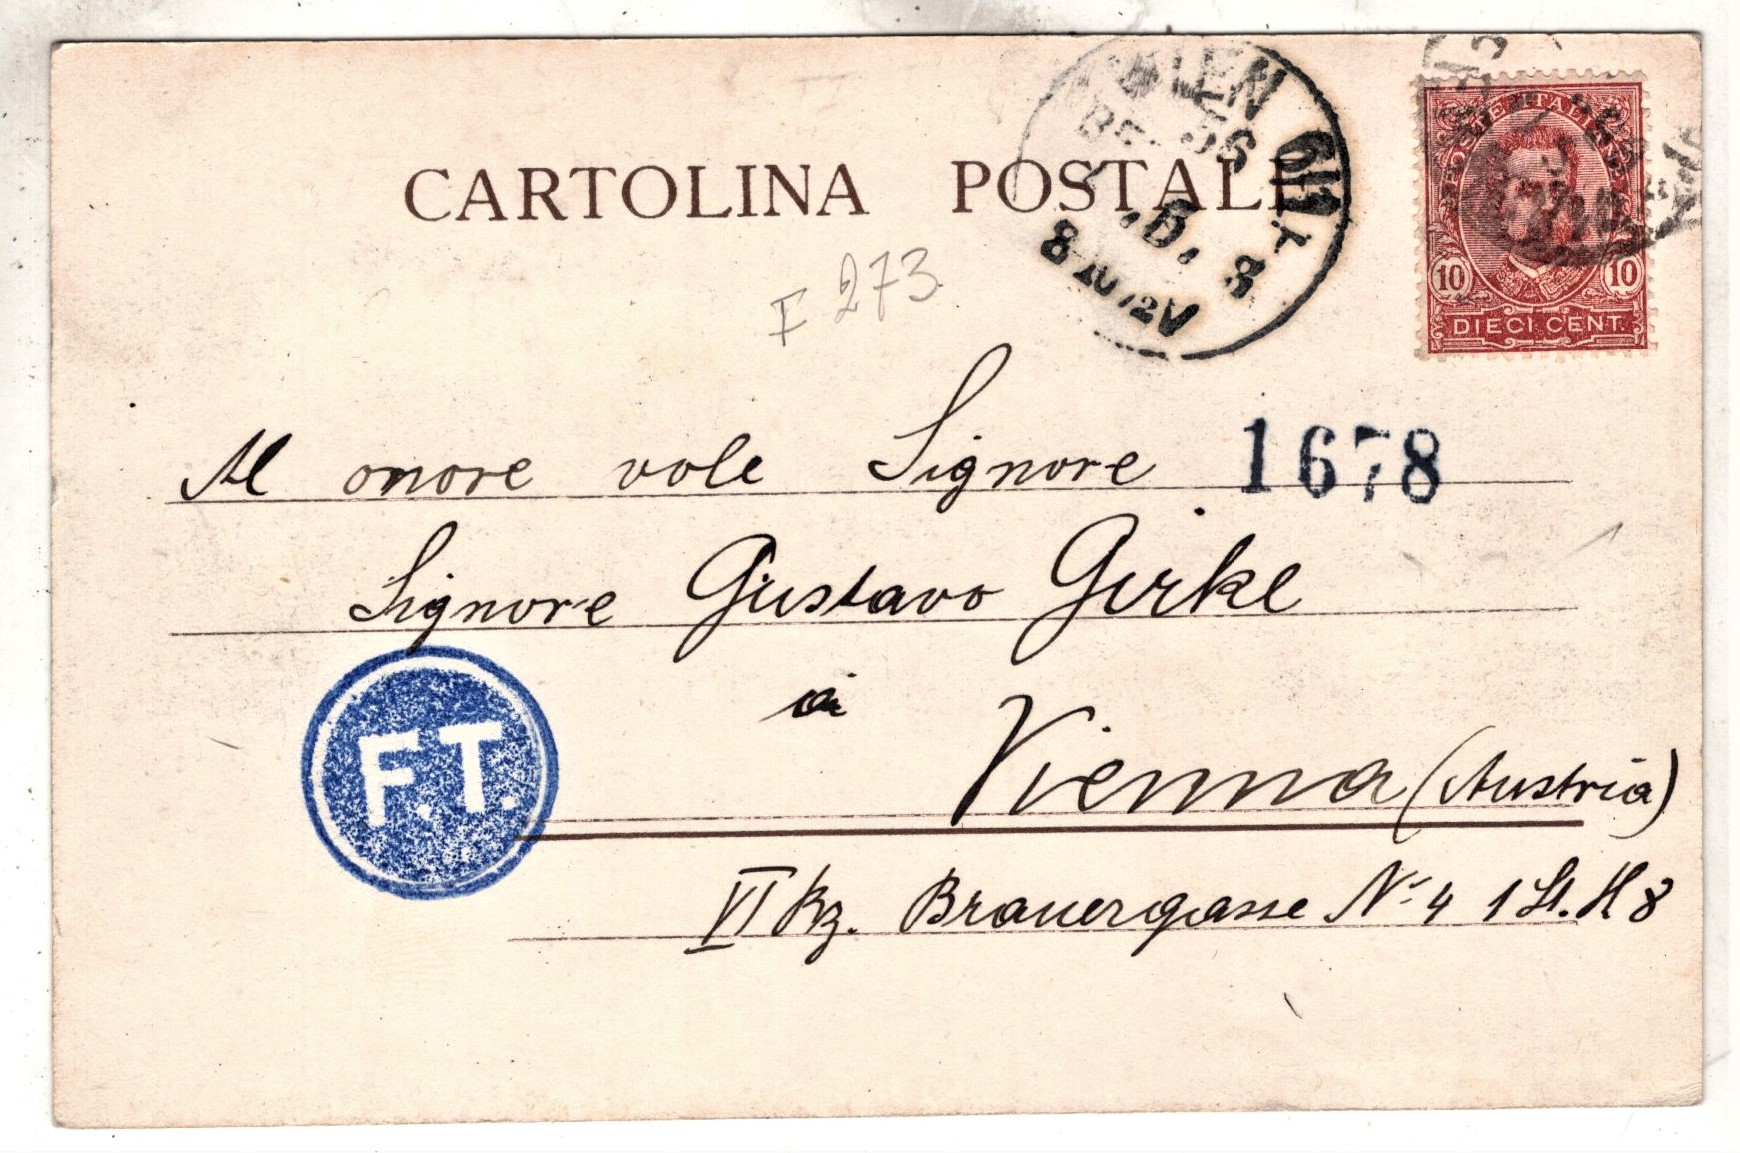 CARTOLINA POSTALE
WIEN 6/1
8
POSTE ITALIANE
10 10
DIECI CENT.
F 273
Al onore vole Signore
1678
Signore Gustavo Girke
a
Vienna (Austria)
F.T.
VI Bz. Brauergasse No 4 1 St. H 8